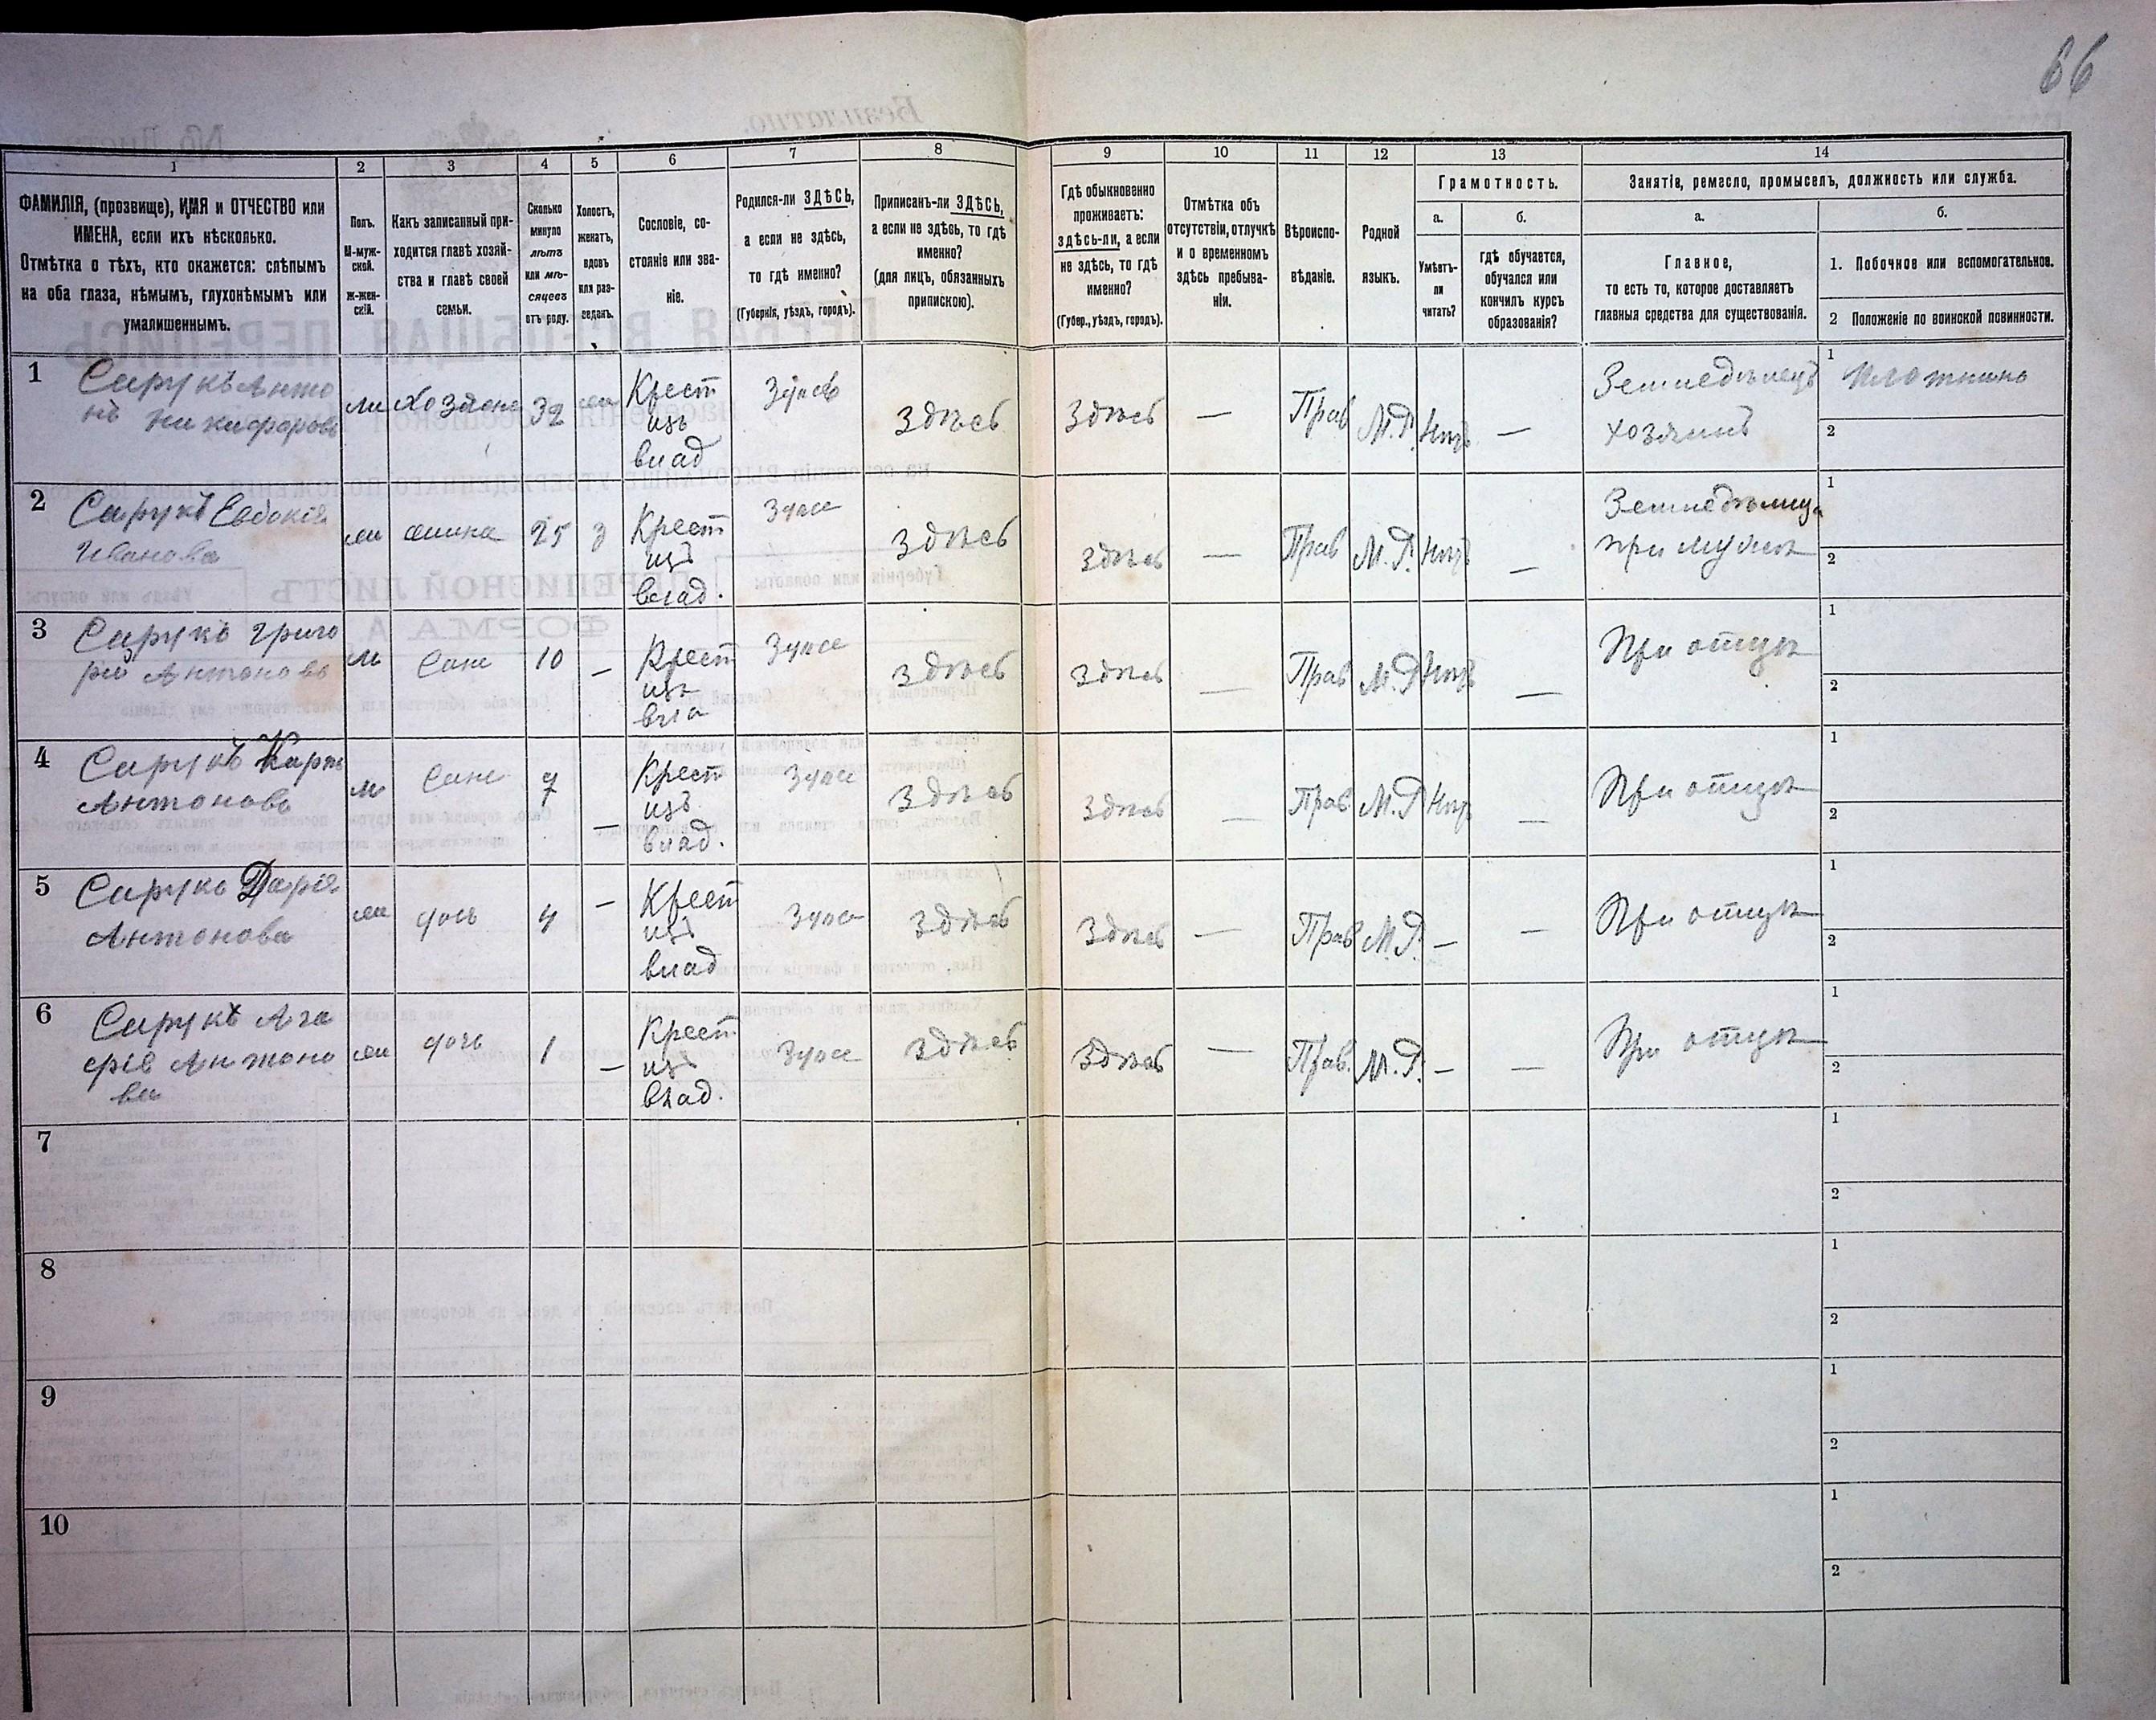 66
1 2 3 4 5 6 7 8 9 10 11 12 13 14
ФАМИЛІЯ, (прозвище), ИМЯ и ОТЧЕСТВО или
ИМЕНА, если ихъ нѣсколько.
Отмѣтка о тѣхъ, кто окажется: слѣпымъ
на оба глаза, нѣмымъ, глухонѣмымъ или
умалишеннымъ.
Полъ.
М-муж-
ской.
Ж-жен-
скій.
Какъ записанный при-
ходится главѣ хозяй-
ства и главѣ своей
семьи.
Сколько
минуло
лѣтъ
или мѣ-
сяцевъ
отъ роду.
Холостъ,
женатъ,
вдовъ
или раз-
веденъ.
Сословіе, со-
стояніе или зва-
ніе.
Родился-ли ЗДѢСЬ,
а если не здѣсь,
то гдѣ именно?
(Губернія, уѣздъ, городъ).
Приписанъ-ли ЗДѢСЬ,
а если не здѣсь, то гдѣ
именно?
(для лицъ, обязанныхъ
припискою).
Гдѣ обыкновенно
проживаетъ:
здѣсь-ли, а если
не здѣсь, то гдѣ
именно?
(Губер., уѣздъ, городъ).
Отмѣтка объ
отсутствіи, отлучкѣ
и о временномъ
здѣсь пребыва-
ніи.
Вѣроиспо-
вѣданіе.
Родной
языкъ.
Грамотность.
а.
Умѣетъ-
ли
читать?
б.
гдѣ обучается,
обучался или
кончилъ курсъ
образованія?
Занятіе, ремесло, промыселъ, должность или служба.
а.
Главное,
то есть то, которое доставляетъ
главныя средства для существованія.
б.
1. Побочное или вспомогательное.
2 Положеніе по воинской повинности.
1
Сирукъ Анто
нъ Никифоровъ
Хозяинъ
32
Крест
изъ
влад
Здѣсь
Здѣсь
—
Прав
М.Р.
Нѣтъ
—
Земледѣлецъ
хозяинъ
1
2
2
Сирукъ Евдокія
Иванова
жена
25
з
Крест
изъ
влад.
Здѣсь
Здѣсь
—
Прав
М.Р.
Нѣтъ
—
при мужѣ
1
2
3
Сирукъ Григо
рій Антоновъ
м
Сынъ
10
—
Крест
изъ
вла
Здѣсь
Здѣсь
—
Прав
М.Р
Нѣтъ
—
При отцѣ
1
2
4
Сирукъ Карпъ
Антоновъ
м
Сынъ
7
—
Крест
изъ
влад.
Здѣсь
Здѣсь
—
Прав
М.Р
Нѣтъ
—
При отцѣ
1
2
5
Сирукъ Дарія
Антонова
дочь
4
—
Крест
изъ
влад
Здѣсь
Здѣсь
—
Прав
М.Р.
—
—
При отцѣ
1
2
6
Сирукъ Ага
фія Антоно
ва
дочь
1
—
Крест
изъ
влад.
Здѣсь
Здѣсь
—
Прав.
М.Р.
—
—
При отцѣ
1
2
7
1
2
8
1
2
9
1
2
10
1
2